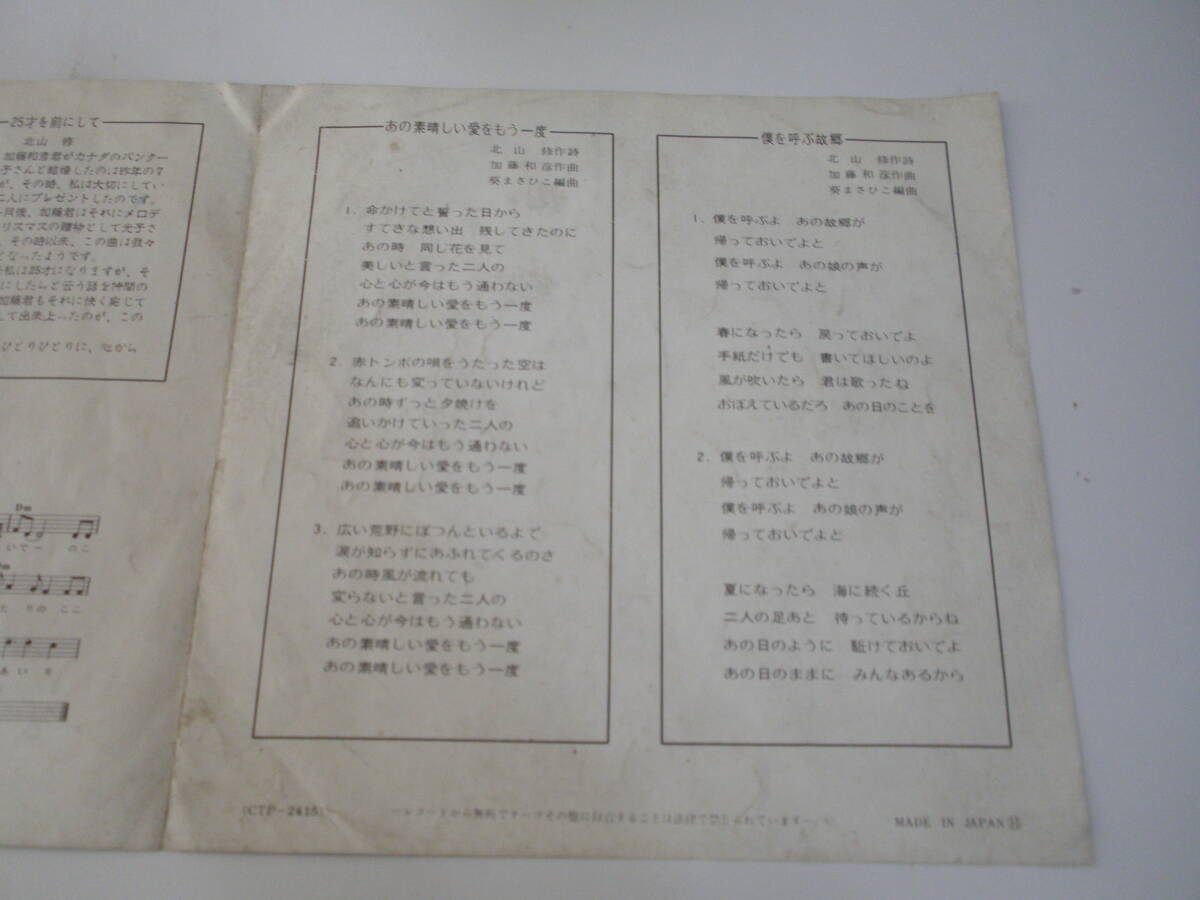 25才を前にして
北山 修
加藤和彦君がカナダのバンクー
子さんと結婚したのは昨年の7
が、その時、私は大切にしてい
二人にプレゼントしたのです。
月後、加藤君はそれにメロデ
リスマスの贈物として光子さ
、その時以来、この曲は我々
となったようです。
私は25才になりますが、そ
にしたらと云う話を仲間の
加藤君もそれに快く応じて
して出来上ったのが、この
ひとりひとりに、心から
Dm
いてー のこ
m
た りの ここ
あい を
あの素晴しい愛をもう一度
北山 修作詩
加藤和彦作曲
葵まさひこ編曲
1. 命かけてと誓った日から
すてきな想い出 残してきたのに
あの時 同じ花を見て
美しいと言った二人の
心と心が今はもう通わない
あの素晴しい愛をもう一度
あの素晴しい愛をもう一度
2. 赤トンボの唄をうたった空は
なんにも変っていないけれど
あの時ずっと夕焼けを
追いかけていった二人の
心と心が今はもう通わない
あの素晴しい愛をもう一度
あの素晴しい愛をもう一度
3. 広い荒野にぽつんといるよで
涙が知らずにあふれてくるのさ
あの時風が流れても
変らないと言った二人の
心と心が今はもう通わない
あの素晴しい愛をもう一度
あの素晴しい愛をもう一度
僕を呼ぶ故郷
北山 修作詩
加藤和彦作曲
葵まさひこ編曲
1. 僕を呼ぶよ あの故郷が
帰っておいでよと
僕を呼ぶよ あの娘の声が
帰っておいでよと
春になったら 戻っておいでよ
手紙だけでも 書いてほしいのよ
風が吹いたら 君は歌ったね
おぼえているだろ あの日のことを
2. 僕を呼ぶよ あの故郷が
帰っておいでよと
僕を呼ぶよ あの娘の声が
帰っておいでよと
夏になったら 海に続く丘
二人の足あと 待っているからね
あの日のように 駈けておいでよ
あの日のままに みんなあるから
(CTP-2415)
—レコードから無断でテープその他に録音することは法律で禁じられています—
MADE IN JAPAN